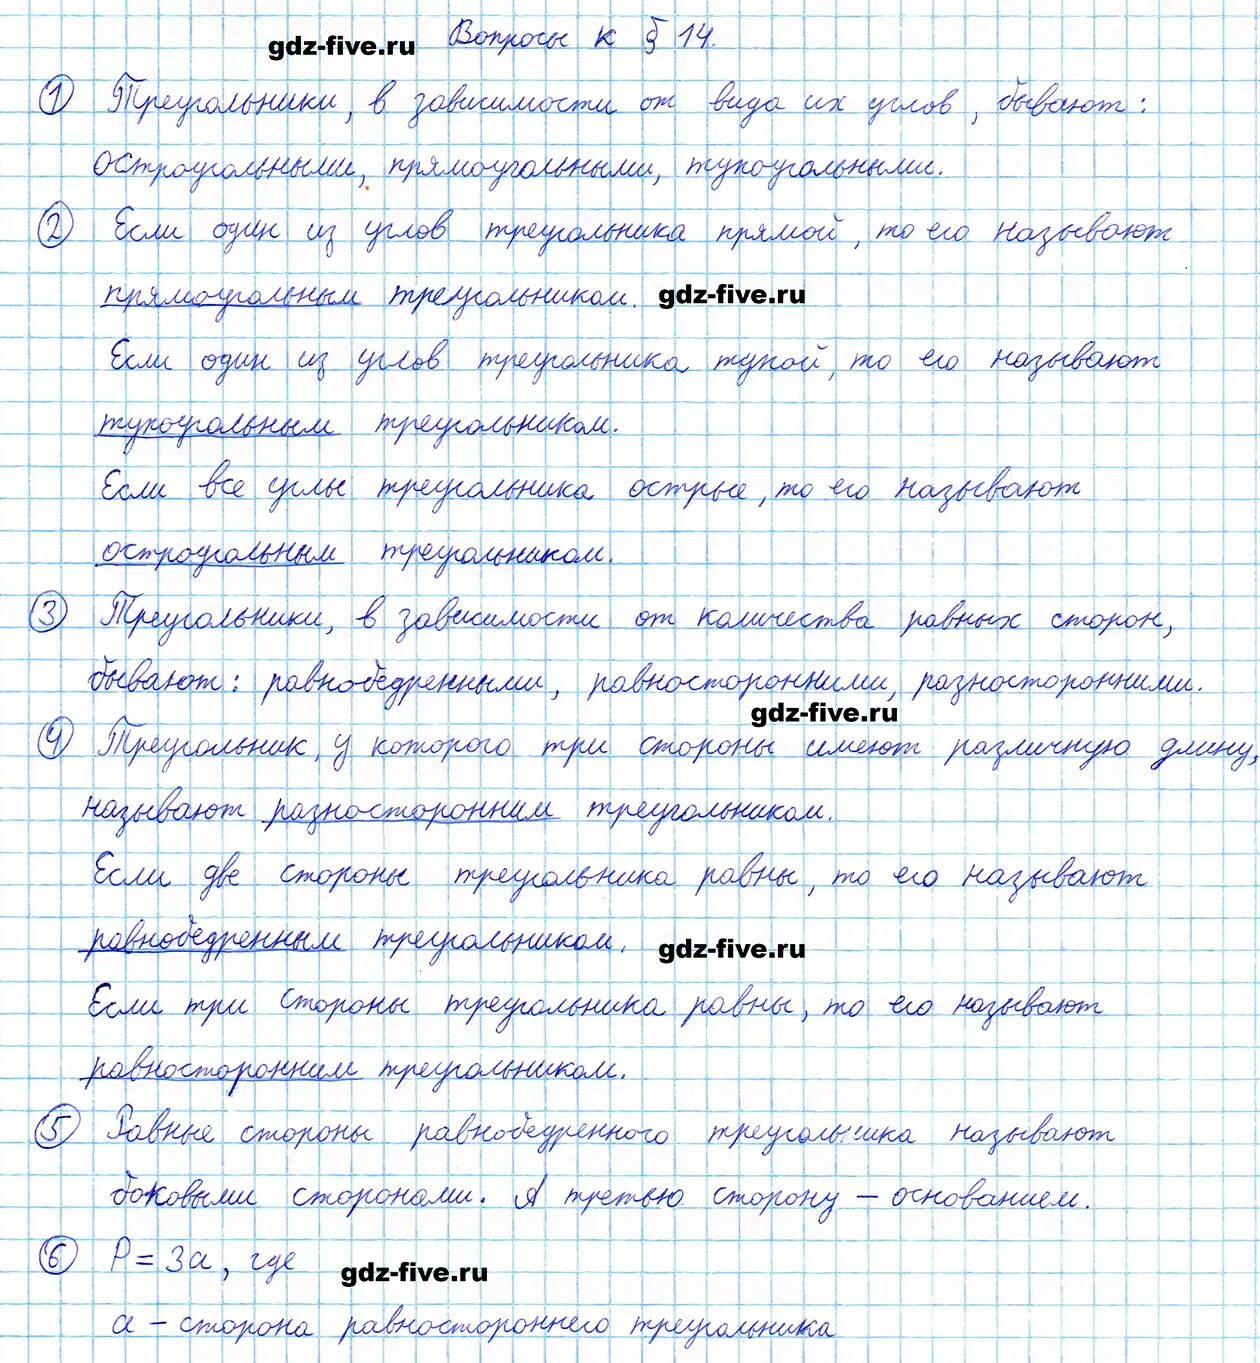 gdz-five.ru Вопросы к § 14.
1 Треугольники, в зависимости от вида их углов, бывают:
остроугольными, прямоугольными, тупоугольными.
2 Если один из углов треугольника прямой, то его называют
прямоугольным треугольником. gdz-five.ru
Если один из углов треугольника тупой, то его называют
тупоугольным треугольником.
Если все углы треугольника острые, то его называют
остроугольным треугольником.
3 Треугольники, в зависимости от количества равных сторон,
бывают: равнобедренными, равносторонними, разносторонними.
gdz-five.ru
4 Треугольник, у которого три стороны имеют различную длину,
называют разносторонним треугольником.
Если две стороны треугольника равны, то его называют
равнобедренным треугольником. gdz-five.ru
Если три стороны треугольника равны, то его называют
равносторонним треугольником.
5 Равные стороны равнобедренного треугольника называют
боковыми сторонами. А третью сторону – основанием.
6 P = 3a, где gdz-five.ru
a – сторона равностороннего треугольника